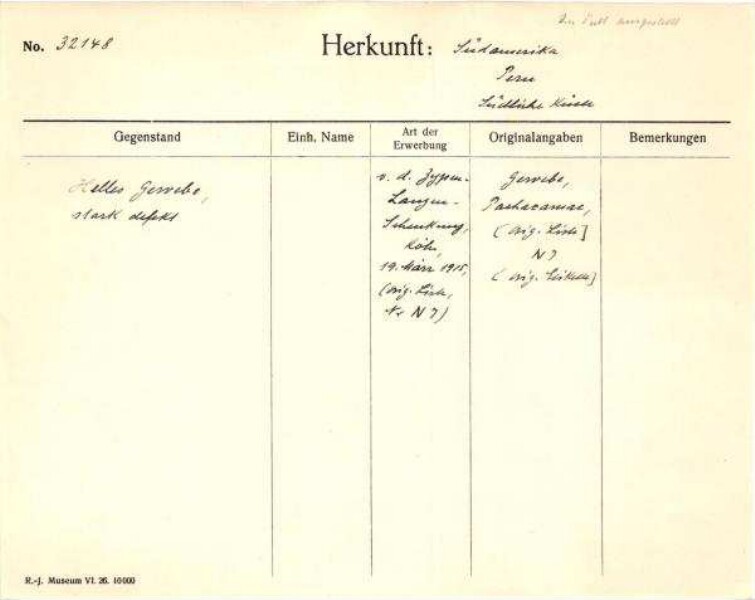 No. 32148
Herkunft: Südamerika
Peru
Südliche Küste
Gegenstand
Einh. Name
Art der
Erwerbung
Originalangaben
Bemerkungen
Helles Gewebe,
stark defekt
v. d. Zypen-
Langen-
Schenkung,
Köln,
19. März 1915,
(orig. Liste,
Nr N 7)
Gewebe,
Pachacamac,
(orig. Liste]
N 7
(orig. Etikette]
R.-J. Museum VI. 26. 10000